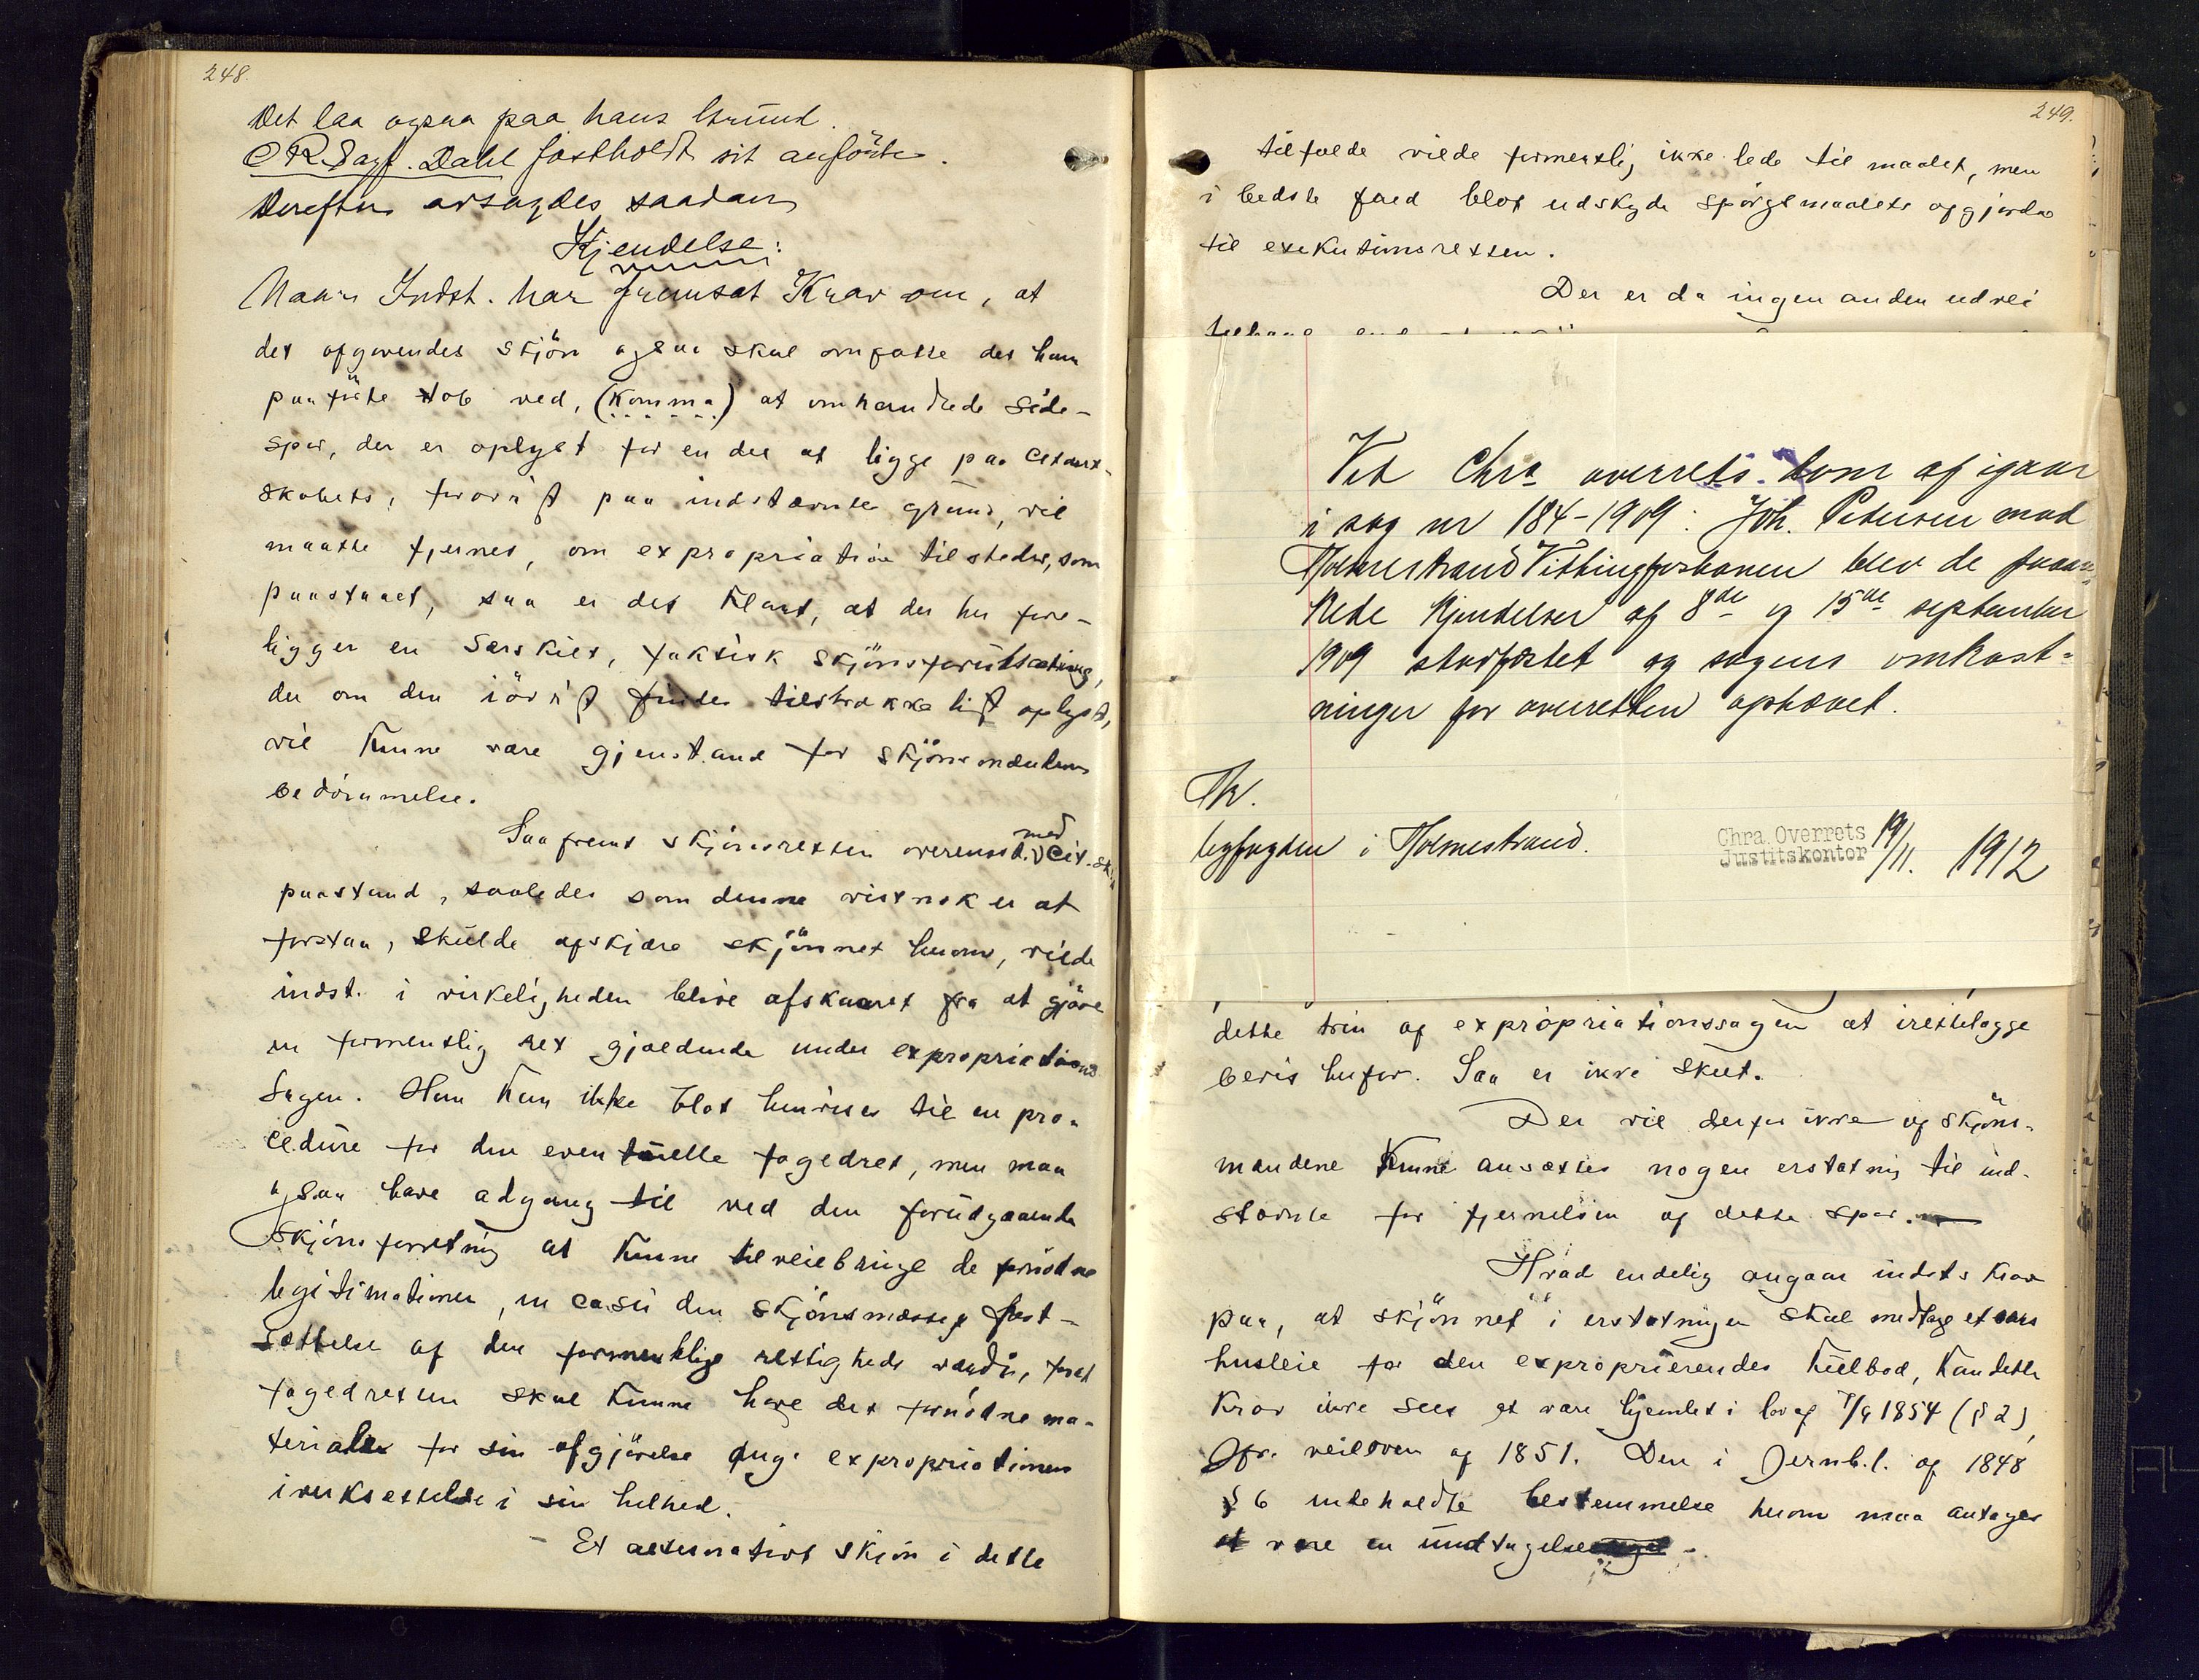 248.
Det laa ogsaa paa hans Grund.
O.R.Sagf. Dahl fastholdt sit anförte.
Derefter avsagdes saadan
Kjendelse:
Naar Indst. har fremsat Krav om, at
det afgivendes skjön ogsaa skal omfatte det ham
paaförte tab ved, (Komma) at omhandlede side-
spor, der er oplyst for en del at ligge paa Citant-
skabets, forövrigt paa indstævnte grund, vil
maatte fjernes, om expropriation tilstedes, som
paastaaet, saa er det klart, at der her fore-
ligger en særskilt, faktisk skjönsforutsætning,
der om den iövrigt findes tilstrækkeligt oplyst,
vil kunne være gjenstand for skjönsmændenes
bedömmelse.
Saafremt skjönsretten overensst. med Cit.sk.s
paastand, saaledes som denne vistnok er at
forstaa, skulde afskjære skjönnet herom, vilde
indst. i virkeligheden blive afskaaret fra at gjöre
en formentlig ret gjældende under expropriations
sagen. Han kan ikke blot henvises til en pro-
cedure for den eventuelle fogedret, men maa
ogsaa have adgang til ved den forudgaaende
skjönsforretning at kunne tilveiebringe de fornödne
legitimationer, in casu den skjönsmæssige fast-
sættelse af den formentlige rettigheds værdi, forat
fogedretten skal kunne have det fornödne ma-
teriale for sin afgjörelse ang. expropriationens
iverksettelse i sin helhed.
- Et alternativt skjön i dette
249.
tilfælde vilde formentlig ikke lede til maalet, men
i bedste fald blot udskyde spörgsmaalets afgjörelse
til exekutionsretten.
Der er da ingen anden udvei
Ved Chra overrets dom af igaar
i sag nr 184-1909: Joh. Petersen mod
Holmestrand Vittingfosbanen blev de paaan-
kede kjendelser af 8de og 15de september
1909 stadfæstet og sagens omkost-
ninger for overretten ophævet.
Th.
byfogden i Holmestrand.
Chra. Overrets
Justitskontor 19/11. 1912
dette trin af expropriationssagen at irettelægge
bevis herfor. Saa er ikke skeet.
Der vil derfor ikke af skjöns-
mændene kunne ansættes nogen erstatning til ind-
stævnte for fjernelsen af dette spor.
Hvad endelig angaar indsts krav
paa, at skjönnet i erstatningen skal medtage et aars
husleie for den exproprierendes kulbod, kan dette
krav ikke sees at være hjemlet i lov af 7/9 1854 (§ 2),
jfr. veiloven af 1851. Den i Jernb.l. af 1848
§ 6 indeholdte bestemmelse herom maa antages
at være en undtagelse